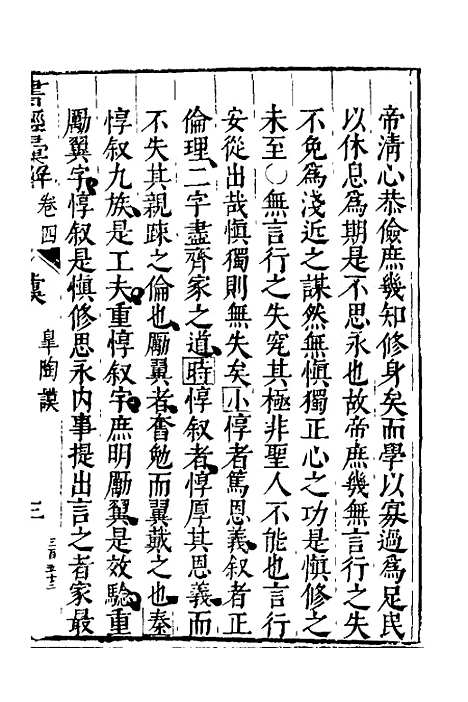 帝清心恭儉庶幾知修身矣而學以寡過爲足民
以休息爲期是不思永也故帝庶幾無言行之失
不免爲淺近之謀然無慎獨正心之功是慎修之
未至○無言行之失究其極非聖人不能也言行
安從出哉慎獨則無失矣小惇者篤恩義叙者正
倫理二字盡齊家之道時惇叙者惇厚其恩義而
不失其親疎之倫也勵翼者奮勉而翼戴之也秦
惇叙九族是工夫重惇叙字庶明勵翼是效驗重
勵翼字惇叙是慎修思永内事提出言之者家最
書經彙解 卷四 虞 皐陶謨 三 三百五十二